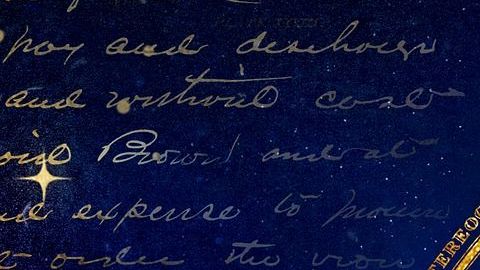 pay and discharge
and without cost
said Brown and at
and expense to procure
order the
EREO